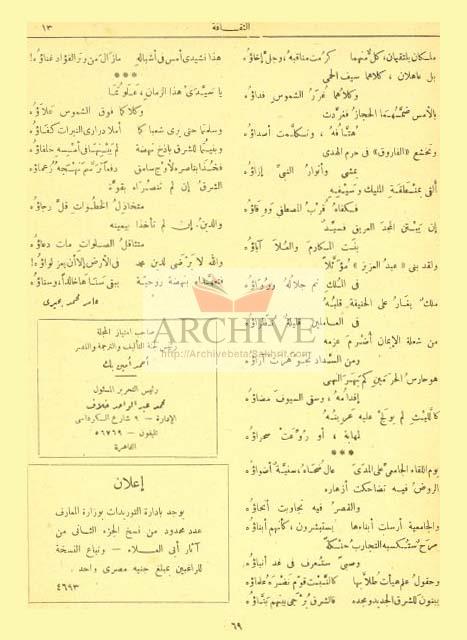 ١٣
الثقافة
ملكان يلتقيان، كل منهما كرمت مناقبه، وجل إخاؤه
بل عاهلان، كلاهما سيف الحمى
وكلاهما غرر الشموس فداؤه
بالأمس ضمتهما الحجاز فغردت
وتخشع «الفاروق» في حرم الهدى
يمشي وأنوار النبي إزاؤه
ألقى بمنطقة المليك وسيفه
فكفاه قرب المصطفى ووقاؤه
إن يبتن المجد العريق فسيد
بنت المكارم والعلا آباؤه
ولقد بنى «عبد العزيز» مؤثلا
في الملك تم جلاله ورواؤه
ملك يغار على الحنيفة قلبه
في العاملين قليلة نظراؤه
من شعلة الإيمان أضرم عزمه
ومن السداد
هو حارس الحرمين
إقدامه، وسنى السيوف مضاؤه
كالليث لم يولج عليه عرينه
لمهابة، أو روعت صحراؤه
***
يوم اللقاء الجامعي على المدى عال ضحاه، سنية أضواؤه
الروض فيه تضاحكت أزهاره
والقصر فيه تجاوبت أنحاؤه
والجامعية أرسلت أبناءها يستبشرون، كأنهم أبناؤه
وصبي ستعرف في غد أنباؤه
وحقول علم هيأت طلابها كالنبت قوم نضره علماؤه
يبنون للشرق الجديد ومجده فالشرق يرجى بينهم بناؤه
هذا نشيدي أمس في أشباله مازال من وتر الفؤاد غناؤه!
***
يا سيدي هذا الزمان،
وكلاكما فوق الشموس علاؤه
وسلمتما حتى يرى شعباكما أملا
وبقيتما للشرق باذخ نهضة
فخذا بناصره لأوج سامق
الشرق إن لم تنصراه بقوة
متخاذل الخطوات قل رجاؤه
والدين إن لم تأخذا بيمينه
متثاقل الصلوات مات دعاؤه
والله لا يرضى لدين محمد في الأرض إلا أن يعز لواؤه!
فتعهداه بنهضة روحية يبقى سناها خالدا، وسناؤه
عامر محمد بحيري
صاحب امتياز المجلة
رئيس لجنة التأليف والترجمة والنشر
أحمد أمين بك
رئيس التحرير المسئول
محمد عبد الواحد خلاف
الإدارة — ٩ شارع الكرداسى
تليفون — ٥٦٧٦٩
القاهرة
إعلان
يوجد بإدارة التوريدات بوزارة المعارف
عدد محدود من نسخ الجزء الثانى من
آثار أبى العلاء — وتباع النسخة
للراغبين بمبلغ جنيه مصرى واحد.
٤٦٩٣
٦٩
ARCHIVE
http://Archivebeta.Sakhrit.com